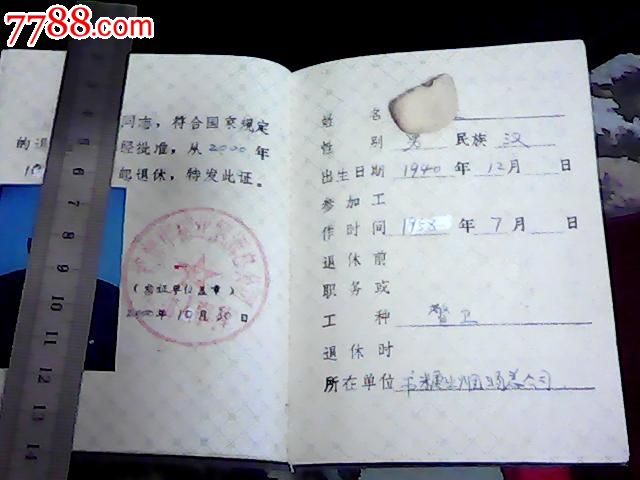 7788.com
同志，符合国家规定
的退
经批准，从2000年
10
起退休，特发此证。
（发证单位盖章）
2000年10月30日
姓 名
性 别 男 民族 汉
出生日期 1940 年 12 月 日
参加工
作时间 1958 年 7 月 日
退休前
职务或
工 种 警卫
退休时
所在单位 总公司
7 8 9 10 11 12 13 14